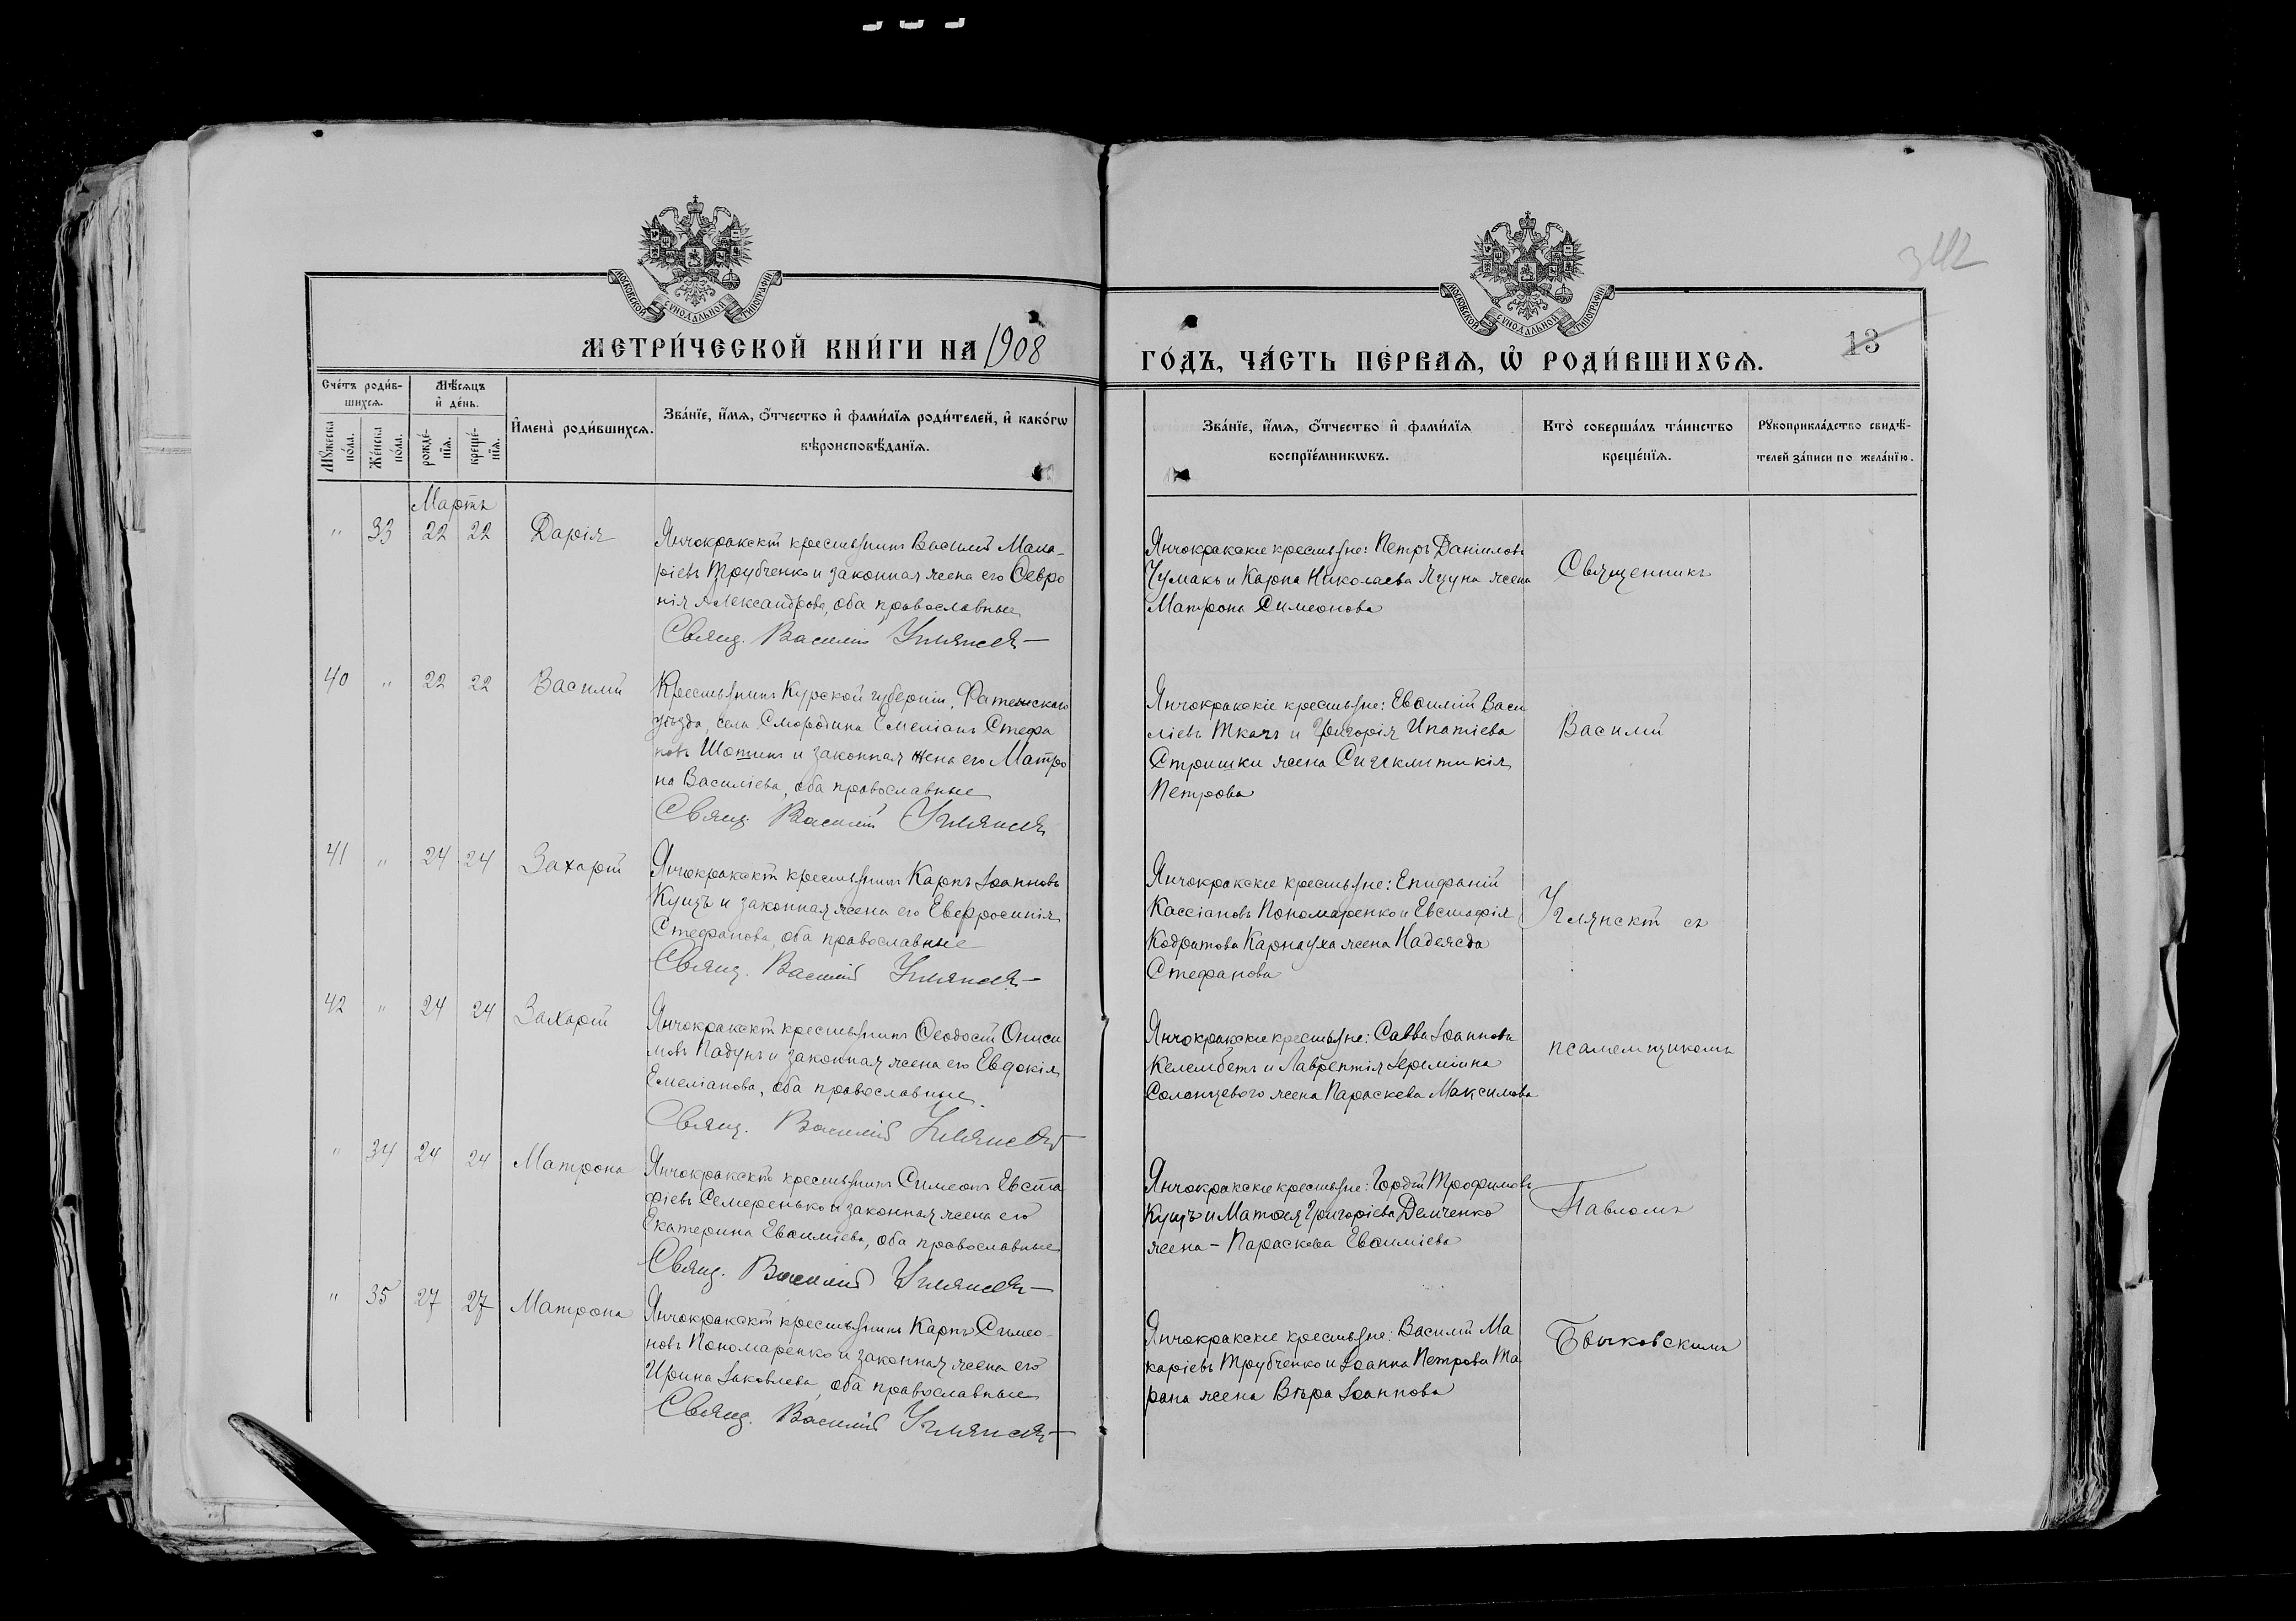 342
13
МОСКОВСКОЙ СѴНОДАЛЬНОЙ ТИПОГРАФІИ
МОСКОВСКОЙ СѴНОДАЛЬНОЙ ТИПОГРАФІИ
МЕТРИ́ЧЕСКОЙ КНИ́ГИ НА 1908
ГО́ДЪ, ЧА́СТЬ ПЕ́РВАѦ, Ѡ҆ РОДИ́ВШИХСѦ.
Сче́тъ роди́в-
шихсѧ.
Мꙋ́жеска по́ла.
Же́нска по́ла.
Мѣ́сѧцъ
и҆ де́нь.
рожде́-нїѧ.
креще́-нїѧ.
И҆мена̀ роди́вшихсѧ.
Зва́нїе, и҆́мѧ, ѻ҆́тчество и҆ фами́лїѧ роди́телей, и҆ како́гѡ
вѣроисповѣ́данїѧ.
Зва́нїе, и҆́мѧ, ѻ҆́тчество и҆ фами́лїѧ
воспрїе́мникѡвъ.
Кто̀ соверша́лъ та́инство
креще́нїѧ.
Рꙋкоприкла́дство свидѣ́-
телей за́писи по жела́нїю.
Мартъ
" 33 22 22 Дарія
Янчокракскій крестьянинъ Василій Мака-
ріевъ Трубченко и законная жена его Ѳевро
нія Александрова, оба православные
Свящ. Василій Углянскій
Янчокракскіе крестьяне: Петръ Даніиловъ
Чумакъ и Карпа Николаева Яцуна жена
Матрона Симеонова
Священникъ
40 " 22 22 Василій
Крестьянинъ Курской губерніи, Фатежскаго
уѣзда, села Смородина Емеліанъ Стефа
новъ Шатинъ и законная жена его Матро
на Василіева, оба православные
Свящ. Василій Углянскій
Янчокракскіе крестьяне: Евѳимій Васи
ліевъ Ткачъ и Григорія Ипатіева
Стришки жена Сигклитикія
Петрова
Василій
41 " 24 24 Захарій
Янчокракскій крестьянинъ Карпъ Іоанновъ
Кущъ и законная жена его Евфросинія
Стефанова, оба православные
Свящ. Василій Углянскій
Янчокракскіе крестьяне: Епифаній
Кассіановъ Пономаренко и Евстафія
Кодратова Карнауха жена Надежда
Стефанова
Углянскій съ
42 " 24 24 Захарій
Янчокракскій крестьянинъ Ѳеодосій Ониси
мовъ Падунъ и законная жена его Евдокія
Емеліанова, оба православные.
Свящ. Василій Углянскій
Янчокракскіе крестьяне: Савва Іоанновъ
Келембетъ и Лаврентія Іереміина
Солонцевого жена Параскева Максимова
псаломщикомъ
" 34 24 24 Матрона
Янчокракскій крестьянинъ Симеонъ Евста
фіевъ Семеренько и законная жена его
Екатерина Евѳиміева, оба православные
Свящ. Василій Углянскій
Янчокракскіе крестьяне: Гордій Трофимовъ
Кущъ и Матѳея Григоріева Демченко
жена - Параскева Евѳиміева
Павломъ
" 35 27 27 Матрона
Янчокракскій крестьянинъ Карпъ Симео-
новъ Пономаренко и законная жена его
Ирина Іаковлева, оба православные
Свящ. Василій Углянскій
Янчокракскіе крестьяне: Василій Ма
каріевъ Трубченко и Іоанна Петрова Та
рана жена Вѣра Іоаннова
Быковскимъ